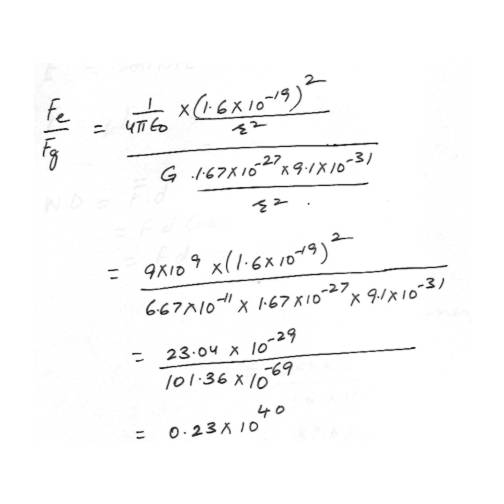 Fe/Fg = 1/4πε0 × (1.6×10^-19)^2 / r^2
G · 1.67×10^-27 × 9.1×10^-31 / r^2 .
= 9×10^9 × (1.6×10^-19)^2
6.67×10^-11 × 1.67×10^-27 × 9.1×10^-31
= 23.04 × 10^-29
101.36 × 10^-69
= 0.23 × 10^40